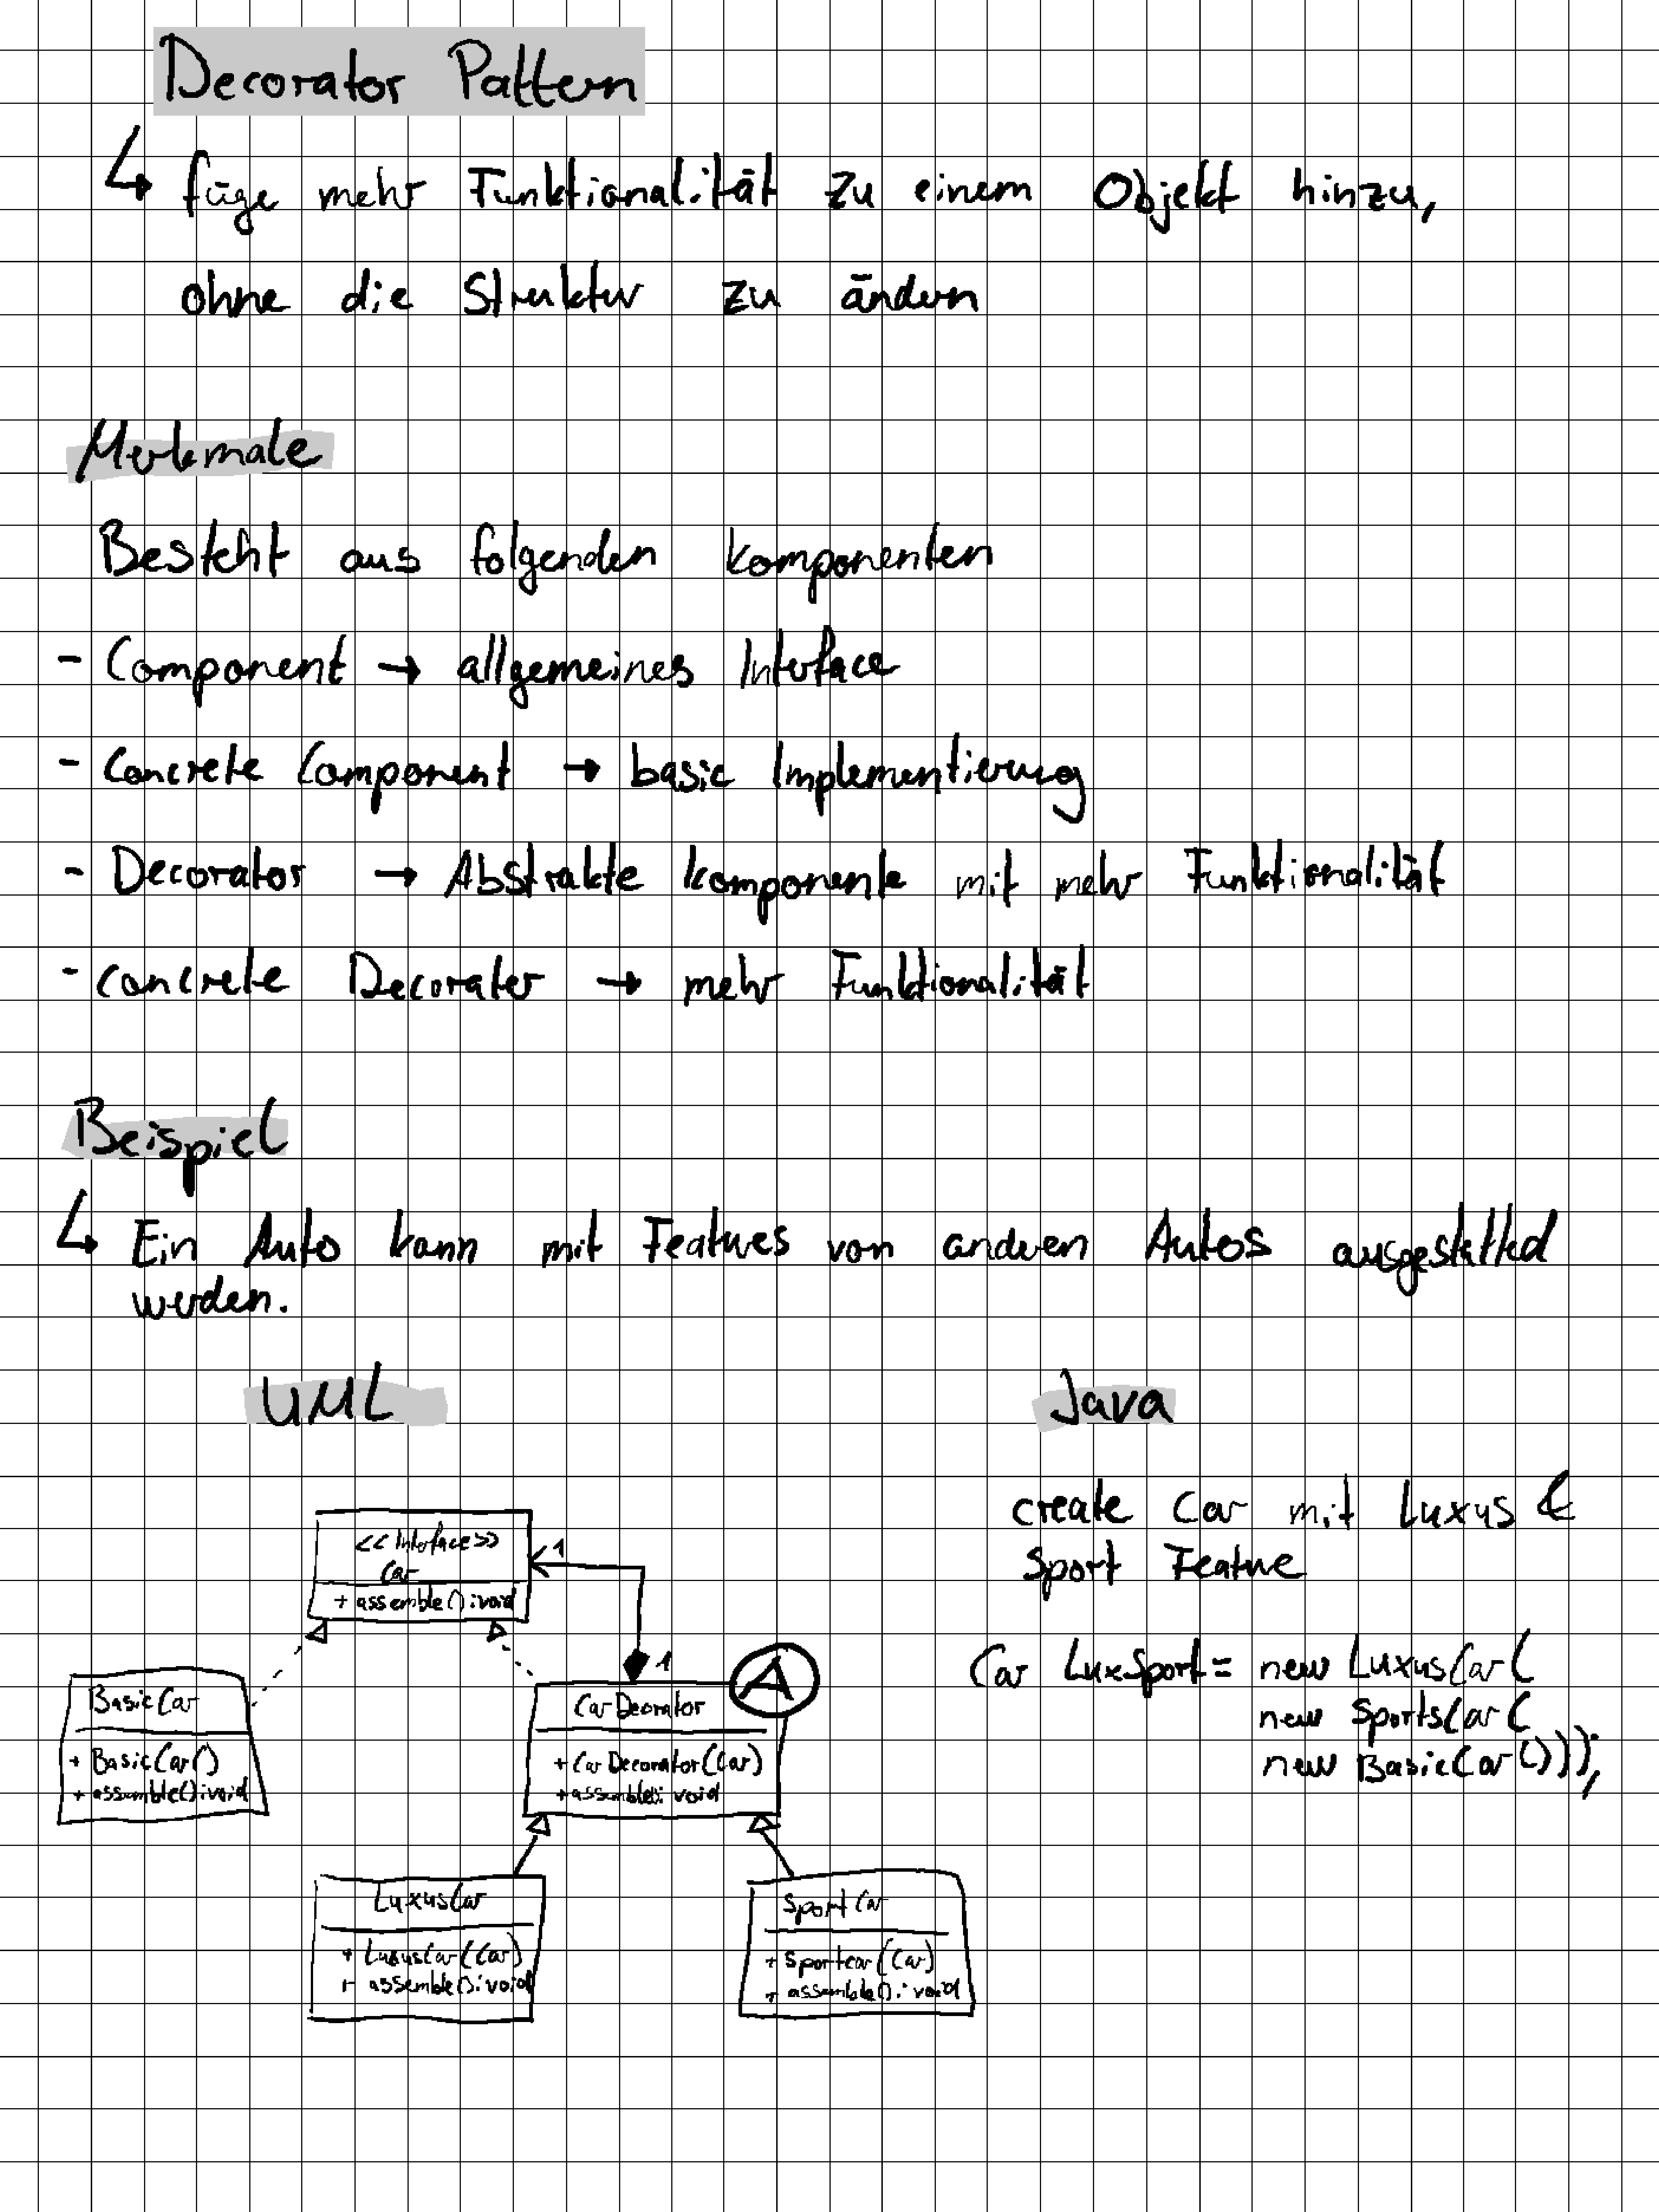 Decorator Pattern
↳ füge mehr Funktionalität zu einem Objekt hinzu,
ohne die Struktur zu ändern
Merkmale
Besteht aus folgenden Komponenten
- Component → allgemeines Interface
- Concrete Component → basic Implementierung
- Decorator → Abstrakte Komponente mit mehr Funktionalität
- concrete Decorater → mehr Funktionalität
Beispiel
↳ Ein Auto kann mit Features von anderen Autos ausgestatted
werden.
UML
<<Interface>>
Car
+ assemble():void
1
1
A
BasicCar
+ BasicCar()
+ assemble():void
CarDecorator
+ CarDecorator(Car)
+ assemble(): void
LuxusCar
+ LuxusCar(Car)
+ assemble():void
SportCar
+ Sportcar(Car)
+ assemble():void
Java
create Car mit Luxus &
Sport Feature
Car LuxSport = new LuxusCar(
new SportsCar(
new BasicCar()));